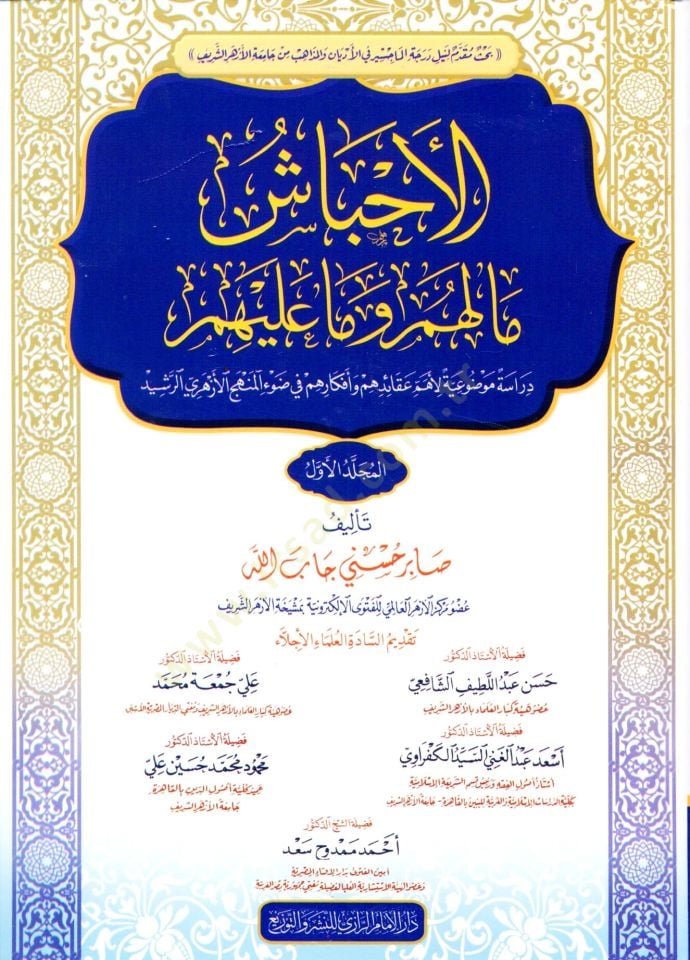 (( بَحْثٌ مُقَدَّمٌ لِنَيْلِ دَرَجَةِ الْمَاجِسْتِيرِ فِي الأَدْيَانِ وَالْمَذَاهِبِ مِنْ جَامِعَةِ الأَزْهَرِ الشَّرِيفِ ))
الأَحْبَاشُ
مَا لَهُمْ وَمَا عَلَيْهِمْ
دِرَاسَةٌ مَوْضُوعِيَّةٌ لِأَهَمِّ عَقَائِدِهِمْ وَأَفْكَارِهِمْ فِي ضَوْءِ الْمَنْهَجِ الأَزْهَرِيِّ الرَّشِيدِ
المُجَلَّدُ الأَوَّلُ
تَأْلِيفُ
صَابِر حُسْنِي جَابَ اللَّه
عُضْوُ مَرْكَزِ الأَزْهَرِ العَالَمِيِّ لِلْفَتْوَى الإِلِكْتِرُونِيَّةِ بِمَشْيَخَةِ الأَزْهَرِ الشَّرِيفِ
تَقْدِيمُ السَّادَةِ العُلَمَاءِ الأَجِلَّاءِ
فَضِيلَةُ الأُسْتَاذِ الدُّكْتُورِ
حَسَن عَبْدُ اللَّطِيفِ الشَّافِعِيّ
عضو هيئة كبار العلماء بالأزهر الشريف
فَضِيلَةُ الأُسْتَاذِ الدُّكْتُورِ
عَلِيّ جُمْعَة مُحَمَّد
عضو هيئة كبار العلماء بالأزهر الشريف ومفتي الديار المصرية الأسبق
فَضِيلَةُ الأُسْتَاذِ الدُّكْتُورِ
أَسْعَد عَبْدُ الغَنِيِّ السَّيِّد الكَفْرَاوِي
أستاذ أصول الفقه ورئيس قسم الشريعة الإسلامية
بكلية الدراسات الإسلامية والعربية للبنين بالقاهرة - جامعة الأزهر الشريف
فَضِيلَةُ الأُسْتَاذِ الدُّكْتُورِ
مَحْمُود مُحَمَّد حُسَيْن عَلِيّ
عميد كلية أصول الدين بالقاهرة
جامعة الأزهر الشريف
فَضِيلَةُ الشَّيْخِ الدُّكْتُورِ
أَحْمَد مَمْدُوح سَعْد
أمين الفتوى بدار الإفتاء المصرية
وعضو الهيئة الاستشارية العليا لفضيلة مفتي جمهورية مصر العربية
دَارُ الإِمَامِ الرَّازِي لِلنَّشْرِ وَالتَّوْزِيعِ